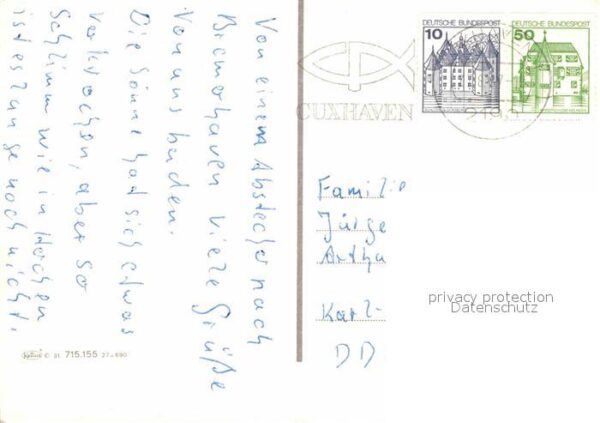 Von einem Abstecher nach
Bremerhaven viele Grüße
von uns beiden.
Die Sonne had sich etwas
verkrochen, aber so
Schlimm wie in
ist es lange noch nicht.
Krüger © 21 715.155 27-680
DEUTSCHE BUNDESPOST
10
DEUTSCHE BUNDESPOST
50
CUXHAVEN
Familie
Jürge
Artha
Karl-
DD
privacy protection
Datenschutz